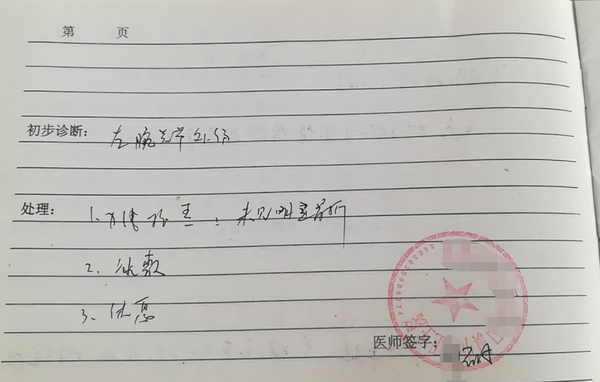 第 页
初步诊断: 左腕关节外伤
处理: 1.X线检查: 未见明显骨折
2、冰敷
3、休息
医师签字: